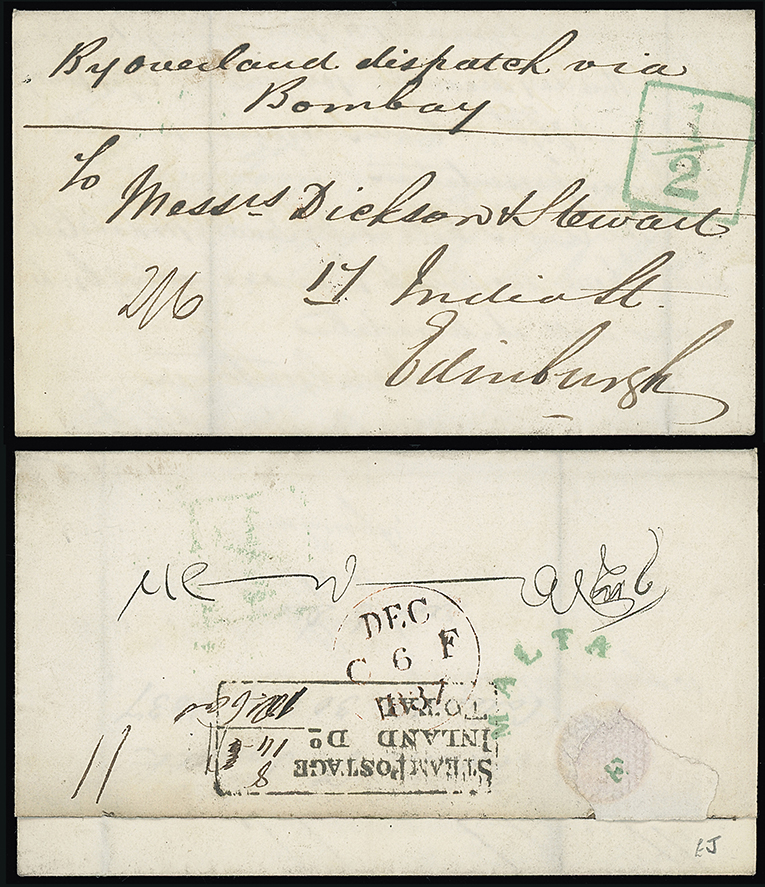 By overland dispatch via
Bombay
1/2
To Messrs Dickson & Stewart
2/6 17 India St
Edinburgh
DEC
C 6 F
1837
MALTA
STEAM POSTAGE 8
INLAND Do
TOTAL
11
EJ